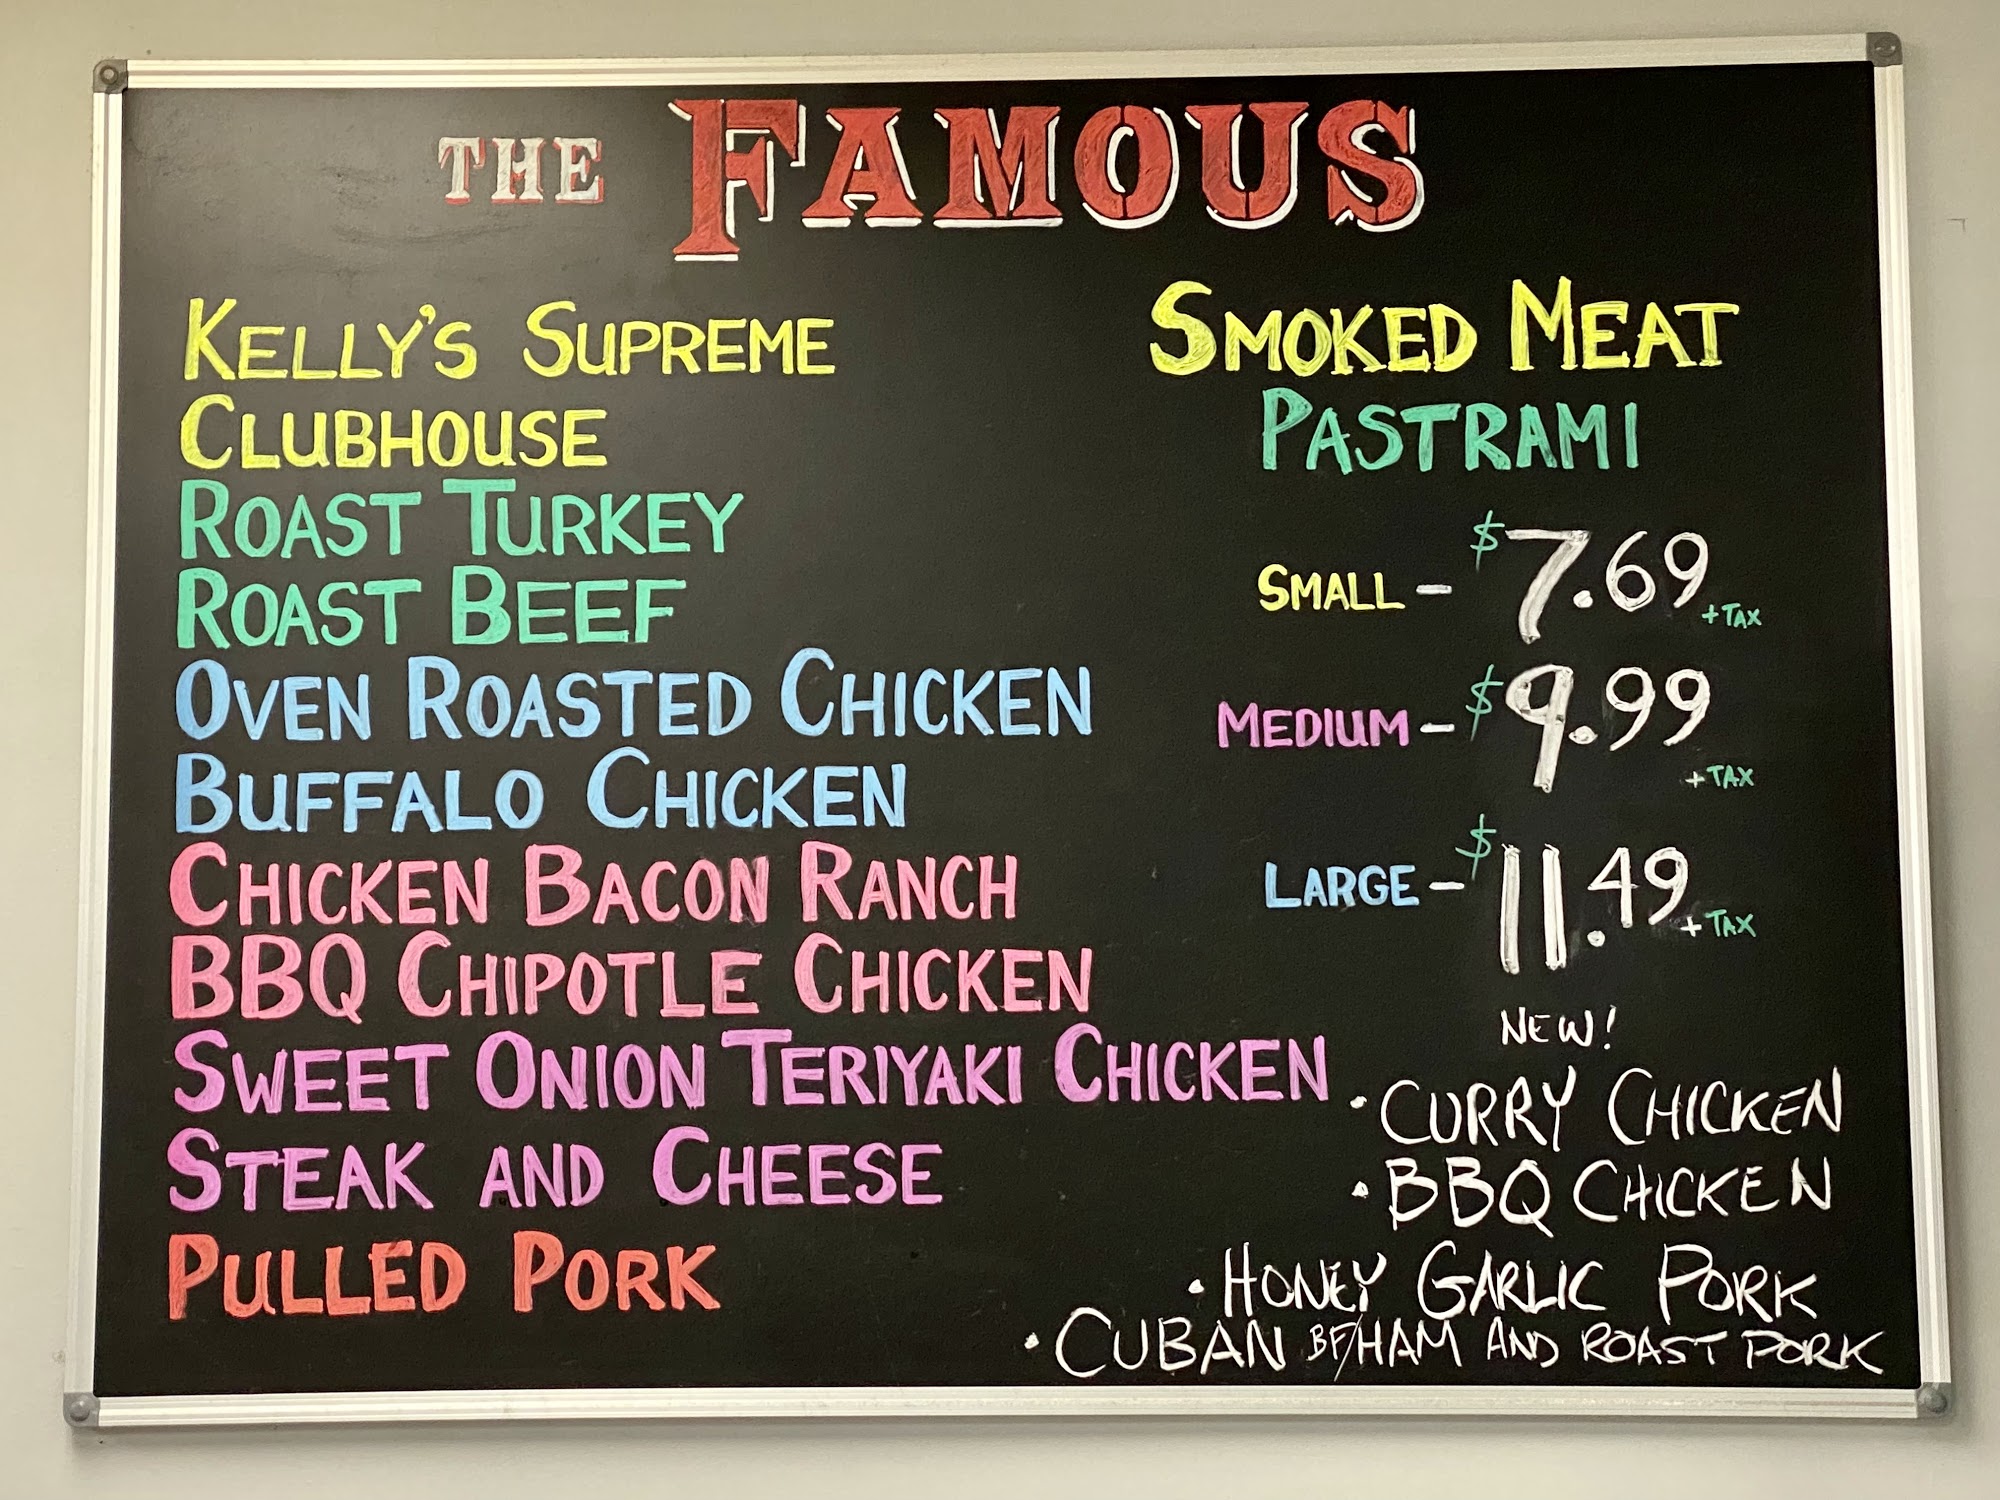 THE FAMOUS
KELLY'S SUPREME
CLUBHOUSE
ROAST TURKEY
ROAST BEEF
OVEN ROASTED CHICKEN
BUFFALO CHICKEN
CHICKEN BACON RANCH
BBQ CHIPOTLE CHICKEN
SWEET ONION TERIYAKI CHICKEN
STEAK AND CHEESE
PULLED PORK
SMOKED MEAT
PASTRAMI
SMALL - $7.69 +TAX
MEDIUM - $9.99 +TAX
LARGE - $11.49 +TAX
NEW!
• CURRY CHICKEN
• BBQ CHICKEN
• HONEY GARLIC PORK
• CUBAN BF/HAM AND ROAST PORK